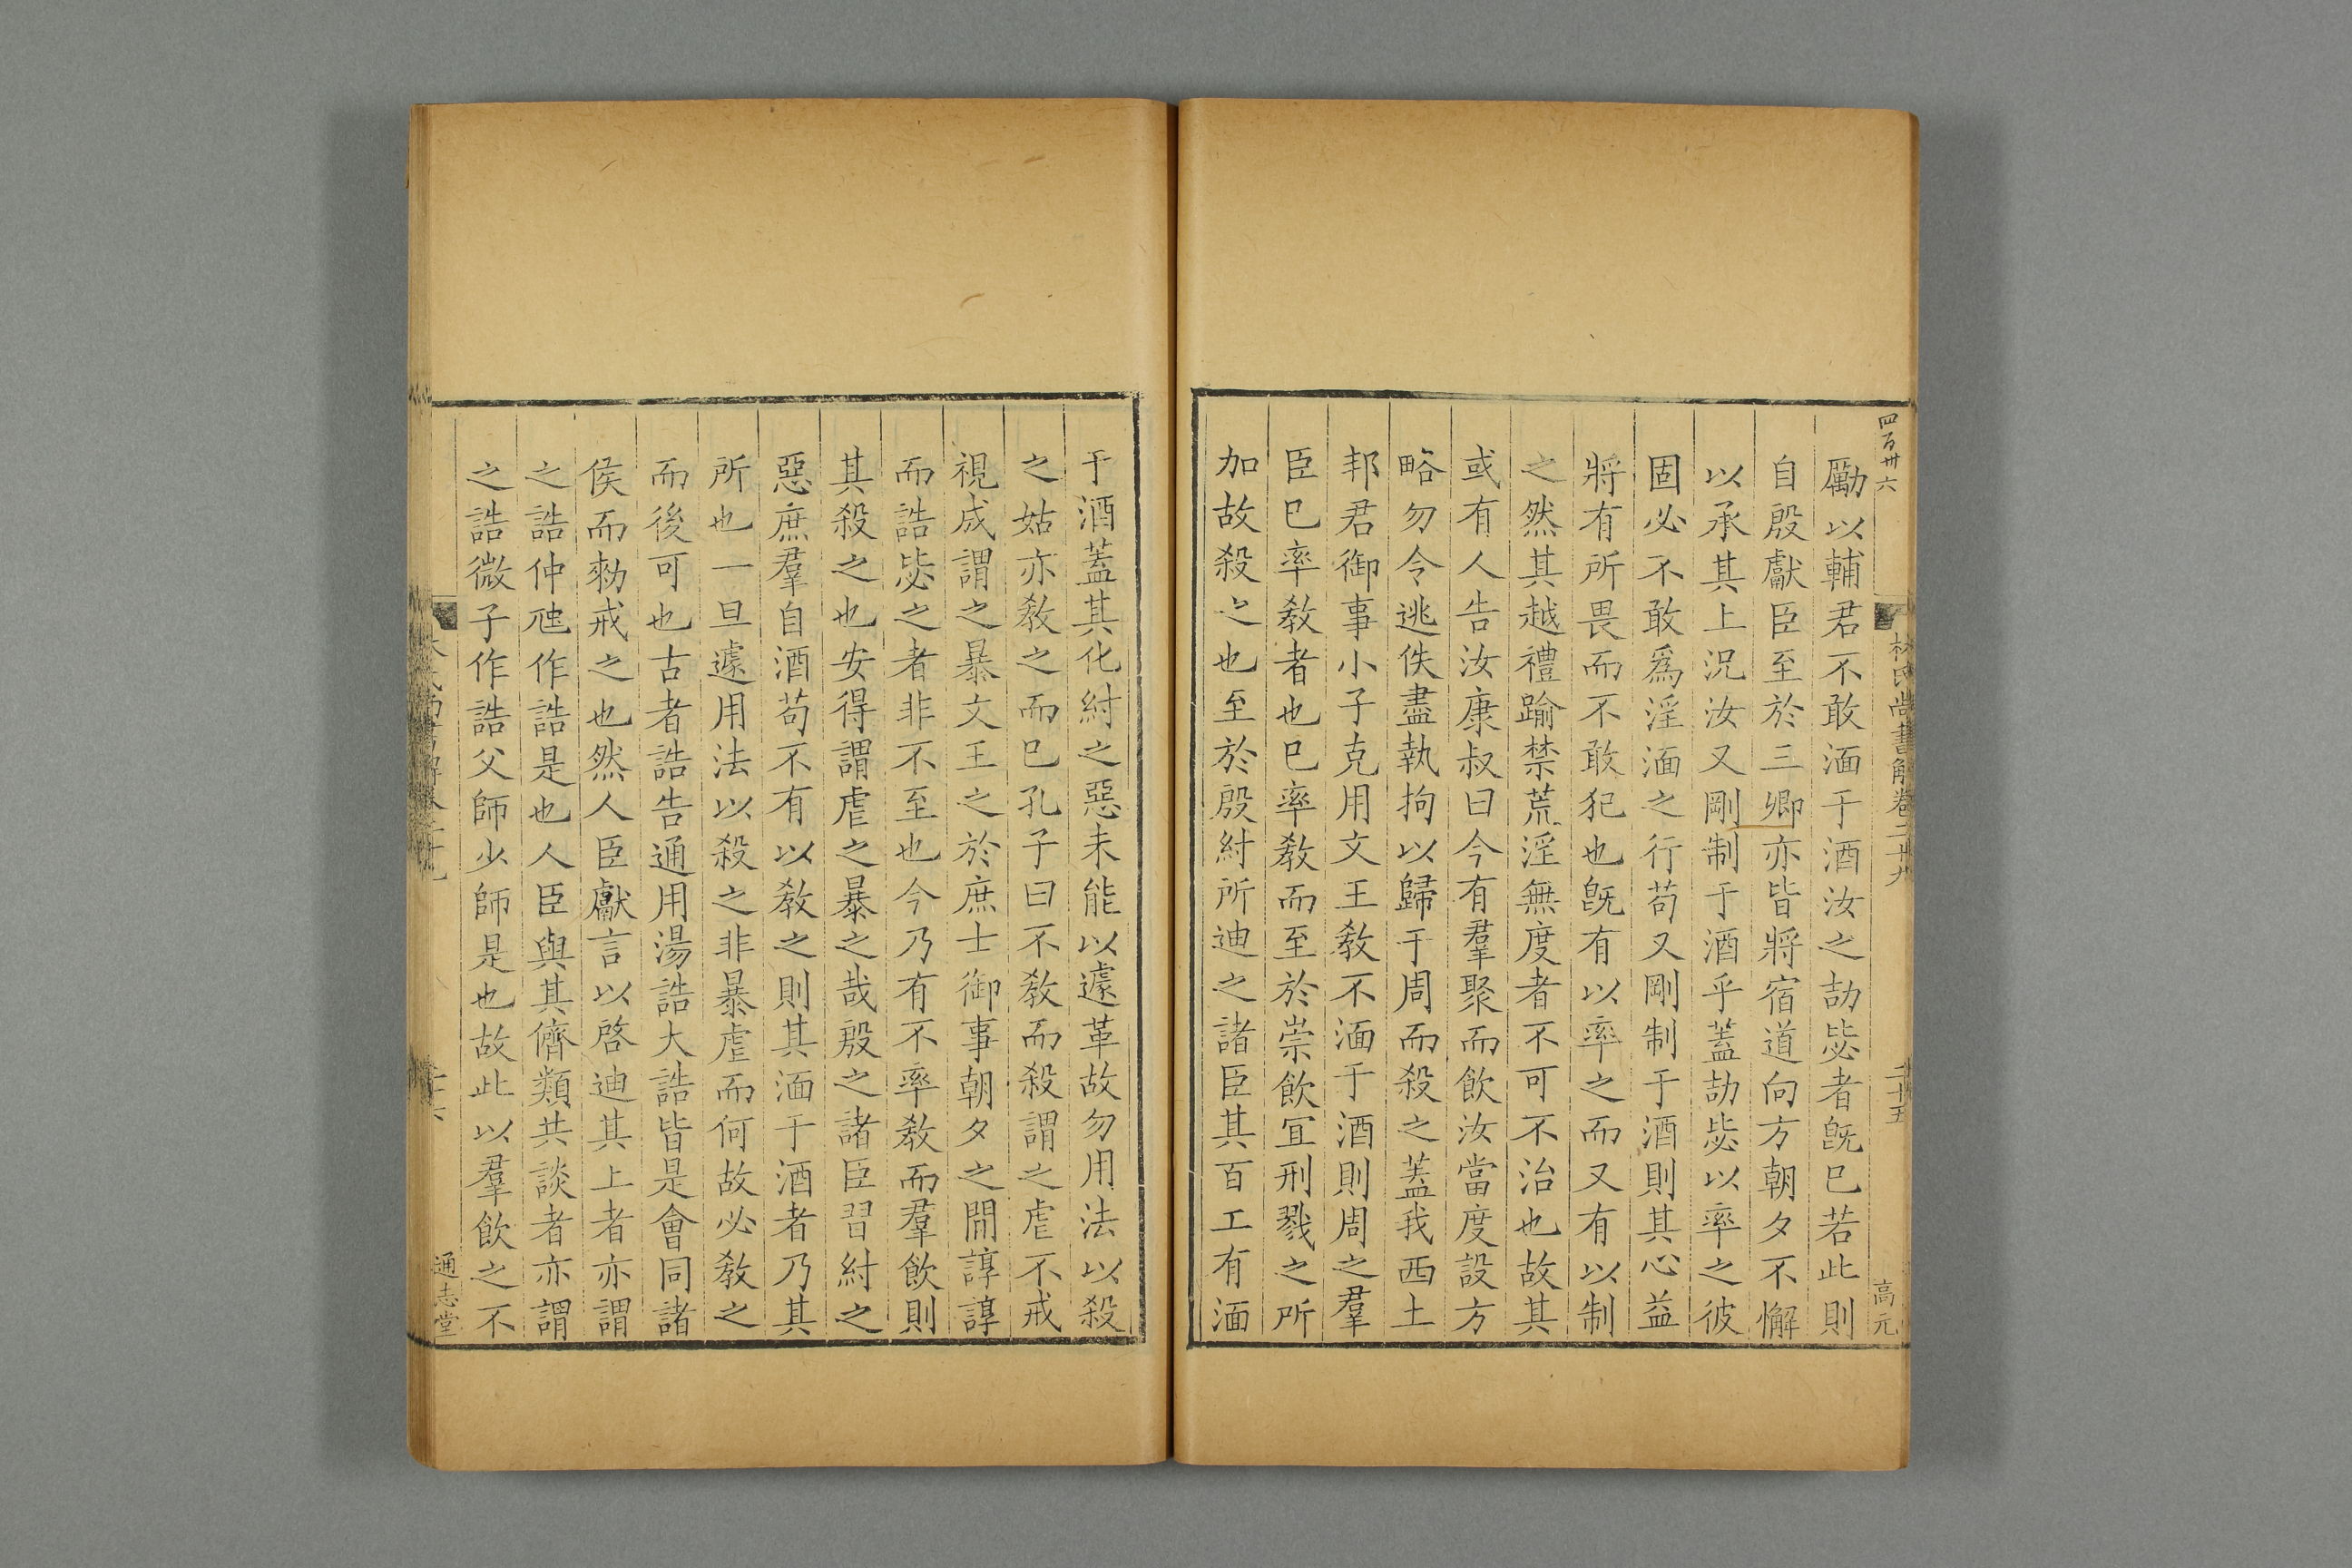 四百卅六
林氏尚書解卷二十九
二十五
高元
勵以輔君不敢湎于酒汝之劼毖者旣已若此則
自殷獻臣至於三卿亦皆將宿道向方朝夕不懈
以承其上況汝又剛制于酒乎蓋劼毖以率之彼
固必不敢爲淫湎之行苟又剛制于酒則其心益
將有所畏而不敢犯也旣有以率之而又有以制
之然其越禮踰禁荒淫無度者不可不治也故其
或有人告汝康叔曰今有羣聚而飲汝當度設方
略勿令逃佚盡執拘以歸于周而殺之蓋我西土
邦君御事小子克用文王教不湎于酒則周之羣
臣已率教者也已率教而至於崇飲冝刑戮之所
加故殺之也至於殷紂所迪之諸臣其百工有湎
于酒蓋其化紂之惡未能以遽革故勿用法以殺
之姑亦教之而已孔子曰不教而殺謂之虐不戒
視成謂之暴文王之於庶士御事朝夕之間諄諄
而誥毖之者非不至也今乃有不率教而羣飲則
其殺之也安得謂虐之暴之哉殷之諸臣習紂之
惡庶羣自酒苟不有以教之則其湎于酒者乃其
所也一旦遽用法以殺之非暴虐而何故必教之
而後可也古者誥告通用湯誥大誥皆是會同諸
侯而勑戒之也然人臣獻言以啓迪其上者亦謂
之誥仲虺作誥是也人臣與其儕類共談者亦謂
之誥微子作誥父師少師是也故此以羣飲之不
通志堂